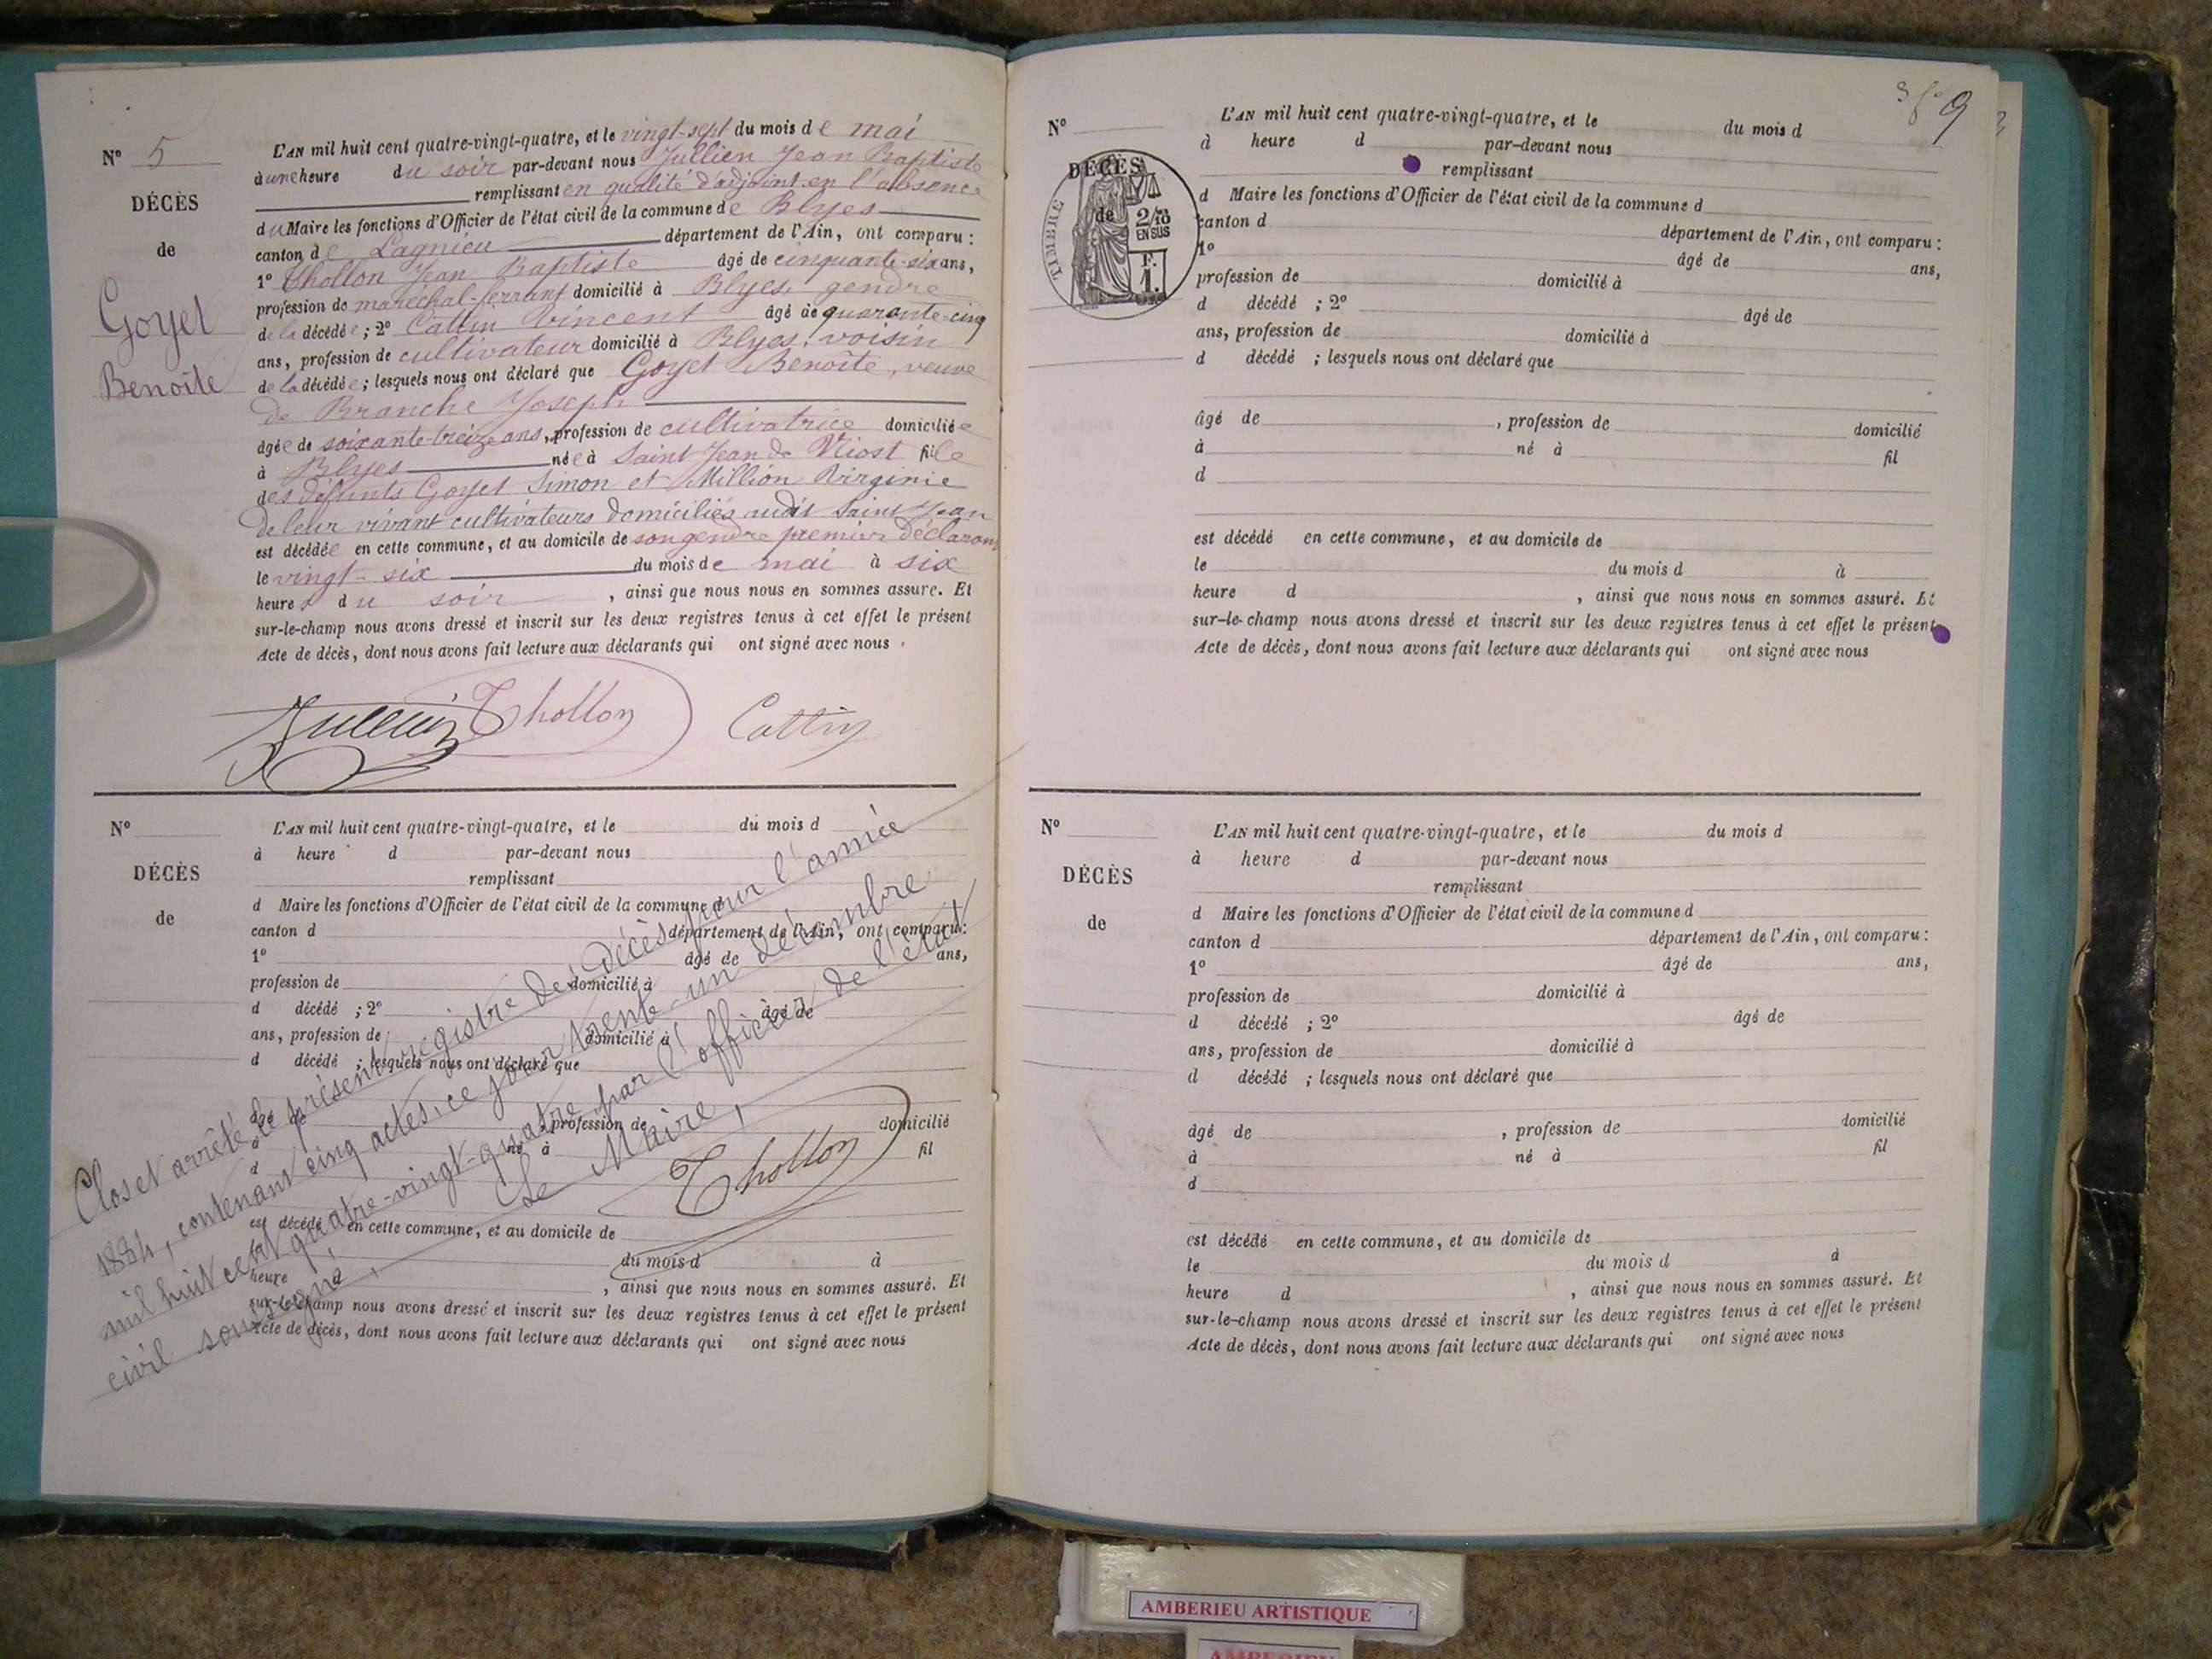 N° 5
DÉCÈS
de
Goyet
Benoîte
L'AN mil huit cent quatre-vingt-quatre, et le vingt-sept du mois de mai
à une heure du soir par-devant nous Jullien Jean Baptiste
remplissant en qualité d'adjoint en l'absence
du Maire les fonctions d'Officier de l'état civil de la commune de Blyes
canton de Lagnieu département de l'Ain, ont comparu :
1° Thollon Jean Baptiste âgé de cinquante-six ans,
profession de maréchal-ferrant domicilié à Blyes, gendre
de la décédée ; 2° Cattin Vincent âgé de quarante-cinq
ans, profession de cultivateur domicilié à Blyes, voisin
de la décédée ; lesquels nous ont déclaré que Goyet Benoîte, veuve
de Branche Joseph
âgée de soixante-treize ans, profession de cultivatrice domiciliée
à Blyes née à Saint Jean de Niost fille
des défunts Goyet Simon et Million Virginie
de leur vivant cultivateurs domiciliés audit Saint Jean
est décédée en cette commune, et au domicile de son gendre premier déclarant
le vingt-six du mois de mai à six
heures du soir , ainsi que nous nous en sommes assuré. Et
sur-le-champ nous avons dressé et inscrit sur les deux registres tenus à cet effet le présent
Acte de décès, dont nous avons fait lecture aux déclarants qui ont signé avec nous .
Jullien Thollon Cattin
N°
DÉCÈS
de
L'AN mil huit cent quatre-vingt-quatre, et le du mois d
à heure d par-devant nous
remplissant
d Maire les fonctions d'Officier de l'état civil de la commune d
canton d département de l'Ain, ont comparu :
1° âgé de ans,
profession de domicilié à
d décédé ; 2° âgé de
ans, profession de domicilié à
d décédé ; lesquels nous ont déclaré que
âgé de , profession de domicilié
à né à fil
d
est décédé en cette commune, et au domicile de
le du mois d à
heure d , ainsi que nous nous en sommes assuré. Et
sur-le-champ nous avons dressé et inscrit sur les deux registres tenus à cet effet le présent
Acte de décès, dont nous avons fait lecture aux déclarants qui ont signé avec nous
Clos et arrêté le présent registre des décès pour l'année
1884, contenant cinq actes, ce jour trente-un décembre
mil huit cent quatre-vingt-quatre par l'officier de l'état
civil soussigné,
Le Maire,
Thollon
9
N°
DÉCÈS
de
TIMBRE
2/10
EN SUS
F.
1.
L'AN mil huit cent quatre-vingt-quatre, et le du mois d
à heure d par-devant nous
remplissant
d Maire les fonctions d'Officier de l'état civil de la commune d
canton d département de l'Ain, ont comparu :
1° âgé de ans,
profession de domicilié à
d décédé ; 2° âgé de
ans, profession de domicilié à
d décédé ; lesquels nous ont déclaré que
âgé de , profession de domicilié
à né à fil
d
est décédé en cette commune, et au domicile de
le du mois d à
heure d , ainsi que nous nous en sommes assuré. Et
sur-le-champ nous avons dressé et inscrit sur les deux registres tenus à cet effet le présent
Acte de décès, dont nous avons fait lecture aux déclarants qui ont signé avec nous
N°
DÉCÈS
de
L'AN mil huit cent quatre-vingt-quatre, et le du mois d
à heure d par-devant nous
remplissant
d Maire les fonctions d'Officier de l'état civil de la commune d
canton d département de l'Ain, ont comparu :
1° âgé de ans,
profession de domicilié à
d décédé ; 2° âgé de
ans, profession de domicilié à
d décédé ; lesquels nous ont déclaré que
âgé de , profession de domicilié
à né à fil
d
est décédé en cette commune, et au domicile de
le du mois d à
heure d , ainsi que nous nous en sommes assuré. Et
sur-le-champ nous avons dressé et inscrit sur les deux registres tenus à cet effet le présent
Acte de décès, dont nous avons fait lecture aux déclarants qui ont signé avec nous
AMBERIEU ARTISTIQUE
AMBERIEU